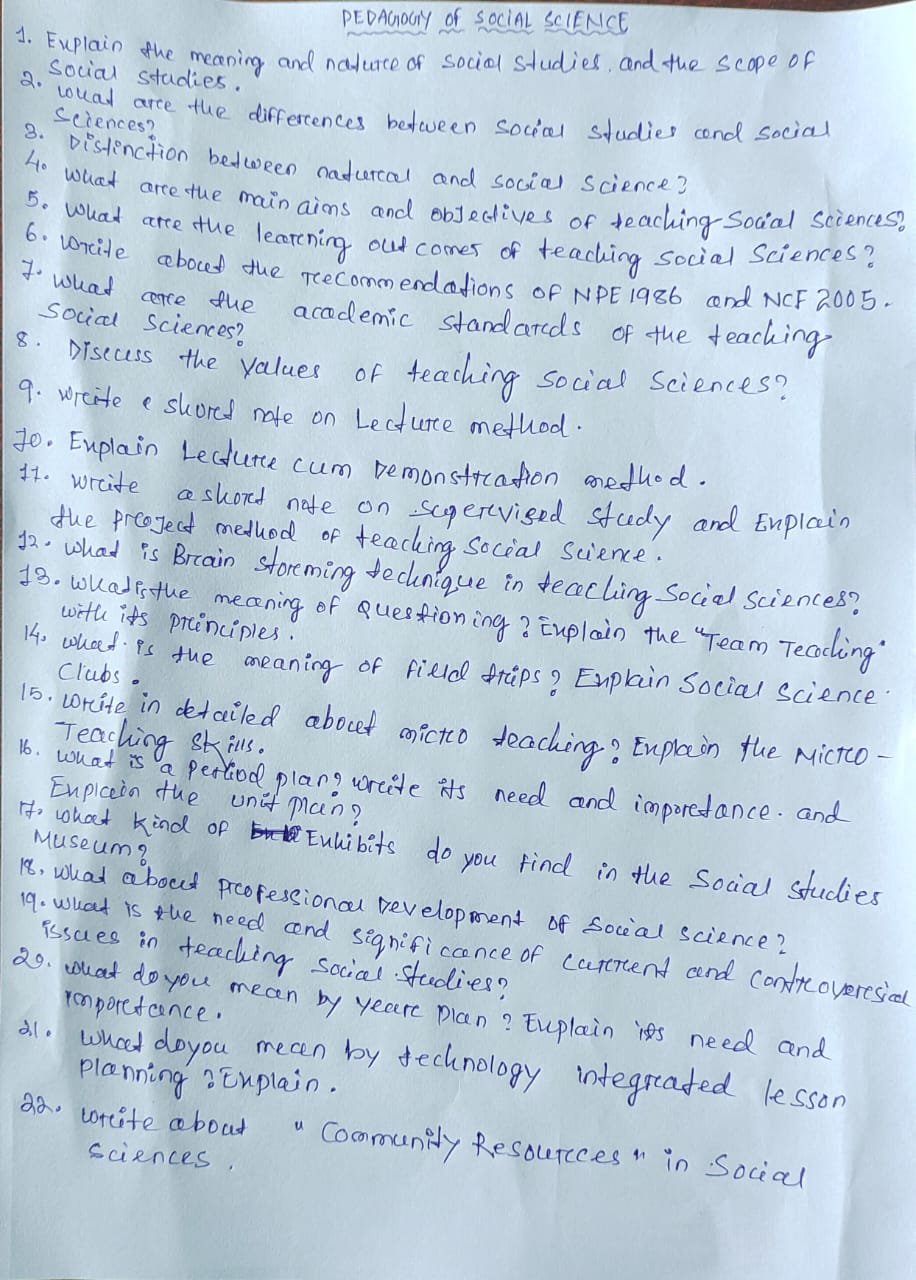 PEDAGOGY of SOCIAL SCIENCE
1. Explain the meaning and nature of social studies. and the scope of
social studies.
2. What are the differences between social studies and social
sciences?
3. Distinction between natural and social science?
4. What are the main aims and objectives of teaching social sciences?
5. What are the learning outcomes of teaching social sciences?
6. Write about the recommendations of NPE 1986 and NCF 2005.
7. What are the academic standards of the teaching
social sciences?
8. Discuss the values of teaching social sciences?
9. Write a short note on Lecture method.
10. Explain Lecture cum Demonstration method.
11. Write a short note on supervised study and Explain
the project method of teaching social science.
12. What is Brain storming technique in teaching social sciences?
13. What is the meaning of questioning? Explain the "Team Teaching"
with its principles.
14. What is the meaning of field trips? Explain social science
clubs.
15. Write in detailed about micro teaching? Explain the Micro-
Teaching skills.
16. What is a period plan? write its need and importance. and
Explain the unit plan?
17. What kind of Exhibits do you find in the social studies
Museum?
18. What about professional Development of social science?
19. What is the need and significance of current and controversial
issues in teaching social studies?
20. What do you mean by year plan? Explain its need and
importance.
21. What do you mean by technology integrated lesson
planning? Explain.
22. Write about "Community Resources" in social
sciences.